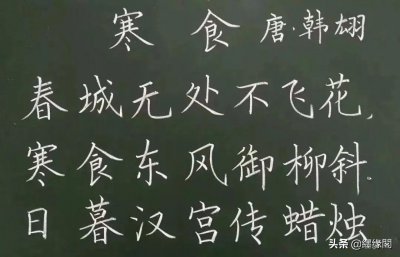 寒食 唐·韩翃
春城无处不飞花，
寒食东风御柳斜。
日暮汉宫传蜡烛
头条 @缠缘阁